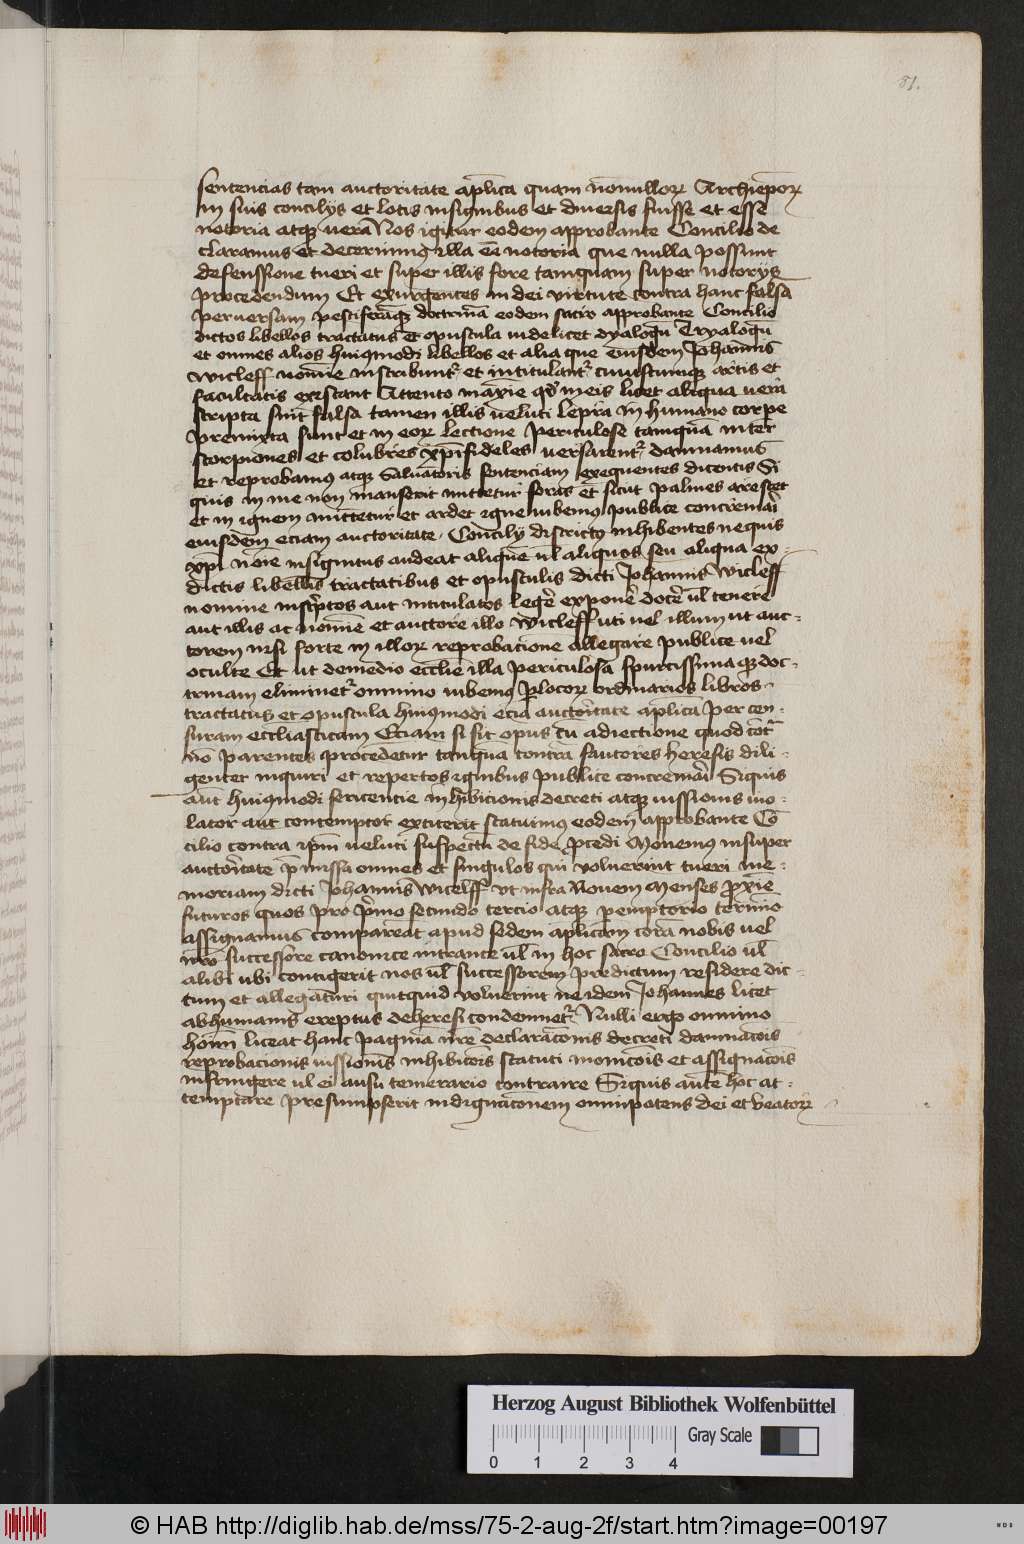 81.
sentencias tam auctoritate aplica quam nonnullor Archiepor
in suis concilys et locis insignibus et diuersis fuisse et esse
notoria atq vera Nos igitur eodem approbante Concilio de
claramus et decernimus illa eē notoria que nulla possunt
defenssione tueri et super illis fore tamquam super notorys
procedendum Et exurgentes in dei virtute contra hanc falsā
peruersam pestiferāq doctrinā eodem sacro approbante Concilio
dictos libellos tractatus et opuscula videlicet dyalogū Tryalogū
et omnes alios huiusmodi libellos et alia que eiusdem Johannis
Wicleff nomine inscribunt et intitulant cuiuscumq artis et
facultatis existant Attento maxime qd in eis licet aliqua vera
scripta sint falsa tamen illis veluti lepra in humano corpe
premixta sunt et in eor lectione periculose tamquā inter
scorpiones et colubres xpifideles versarent dampnamus
et reprobamus atq Saluatoris sentenciam exequentes dicentis Si
quis in me non manserit mittetur foras et sicut palmes arescet
et in ignem mittetur et ardet igne iubemus publice concremari
eiusdem eciam auctoritate Concily districto inhibentes nequis
xpi nōie insignitus audeat aliquē vl aliquos seu aliqua ex
dictis libellis tractatibus et opusculis dicti Johannis Wicleff
nomine inscriptos aut intitulatos legere exponere docere vl tenere
aut illis ac nomine et auctore illo Wicleff uti vel illum ut auc-
torem nisi forte in illor reprobatione allegare publice vel
oculte Et ut demedio ecclie illa periculosa spurcissimaq doc-
trinam eliminet omnino iubemus p locor ordinarios libros
tractatus et opuscula huiusmodi eciā auctoritate aplica per cen-
suram eccliasticam Eciam si sit opus cū adiectione quod cōtr
nō parentes procedetur tanquā contra fautores heresis dili-
genter inquiri et repertos ignibus publice concremari Siquis
aut huiusmodi sentencie inhibicionis decreti atq iussionis vio-
lator aut contemptor extiterit statuimus eodem approbante Cō
cilio contra ipm veluti suspectū de fide pcedi Monemus insuper
auctoritate p missa omnes et singulos qui voluerint tueri me-
moriam dicti Johannis Wicleff ut infra Nouem Menses pxiē
futuros quos pro primo secundo tercio atq pemptorio termino
assignamus compareāt apud sedem aplicam corā nobis vel
nro successore canonice intrante vl in hoc sacro Concilio vl
alibi ubi contigerit nos vl successorem predictum residere dic-
tum et allegaturi quitquid voluerint ne idem Johannes licet
abhumanis exeptus deheresi condemnet Nulli ergo omnino
homin liceat hanc paginā nre declaracionis decreti damnacois
reprobacionis iussionis inhibicois statuti monicois et assignacois
infringere vl ei ausu temerario contraire Siquis autē hoc at-
temptare presumpserit indignacionem omnipotens dei et beator
Herzog August Bibliothek Wolfenbüttel
Gray Scale
0 1 2 3 4
© HAB http://diglib.hab.de/mss/75-2-aug-2f/start.htm?image=00197